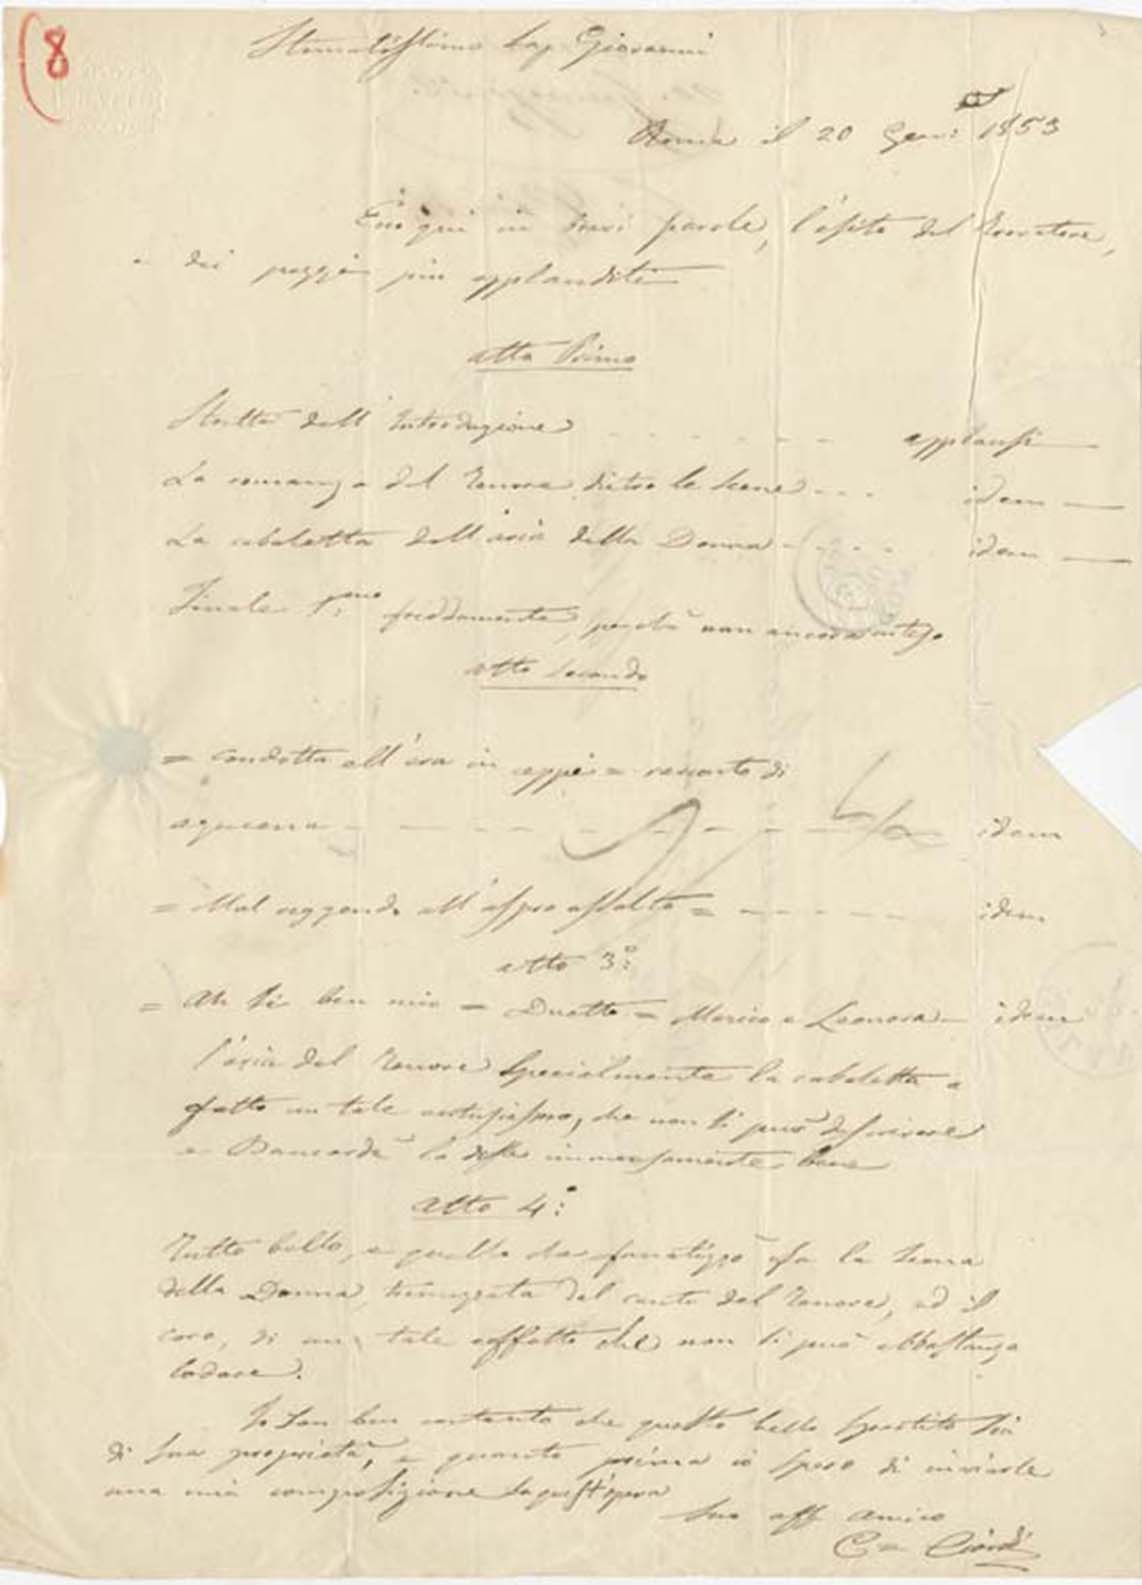 8
Stimatissimo Sig. Giovanni
Roma il 20 Gen: 1853
Eccoqui in brevi parole, l'esito del Trovatore,
e dei pezzi più applauditi
Atto Primo
Stretta dell'Introduzione - - - - - - applausi
La romanza del Tenore dietro le Scene - - - idem
La cabaletta dell'aria della Donna - - - - idem
Finale 1.mo freddamente, perchè non ancora inteso
Atto Secondo
= condotta ell'era in ceppi = racconto di
azucena - - - - - - - idem
= Mal reggendo all'aspro assalto = - - - - - idem
atto 3.o
= Ah si ben mio = Duetto = Manrico e Leonora - idem
l'aria del Tenore specialmente la cabaletta a
fatto un tale entusiasmo, che non si può descrivere
e Baucardè la disse immensamente bene
Atto 4.o
Tutto bello, e quello che fanatizzò fu la Scena
della Donna, del canto del Tenore, ed il
coro, di un tale effetto che non si può abbastanza
lodare.
Io son ben contento che questo bello Spartito sia
di sua proprietà, e quanto prima io spero di inviarle
una mia composizione su quest'opera
Suo aff. amico
C= Ciardi